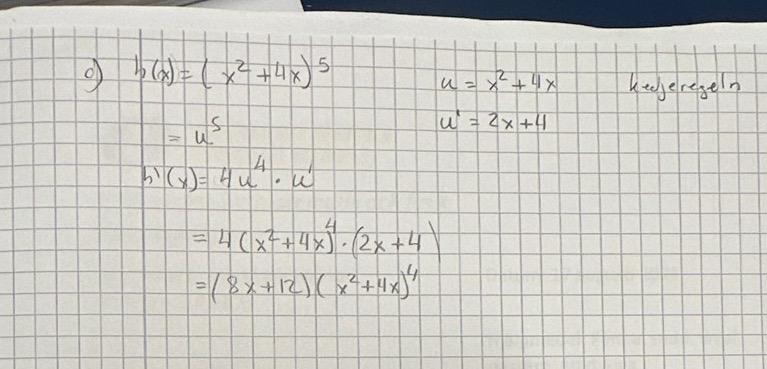 c) h(x) = (x² + 4x)⁵ u = x² + 4x kjerneregeln
= u⁵ u' = 2x + 4
h'(x) = 4u⁴ · u'
= 4(x² + 4x)⁴ · (2x + 4)
= (8x + 12)(x² + 4x)⁴